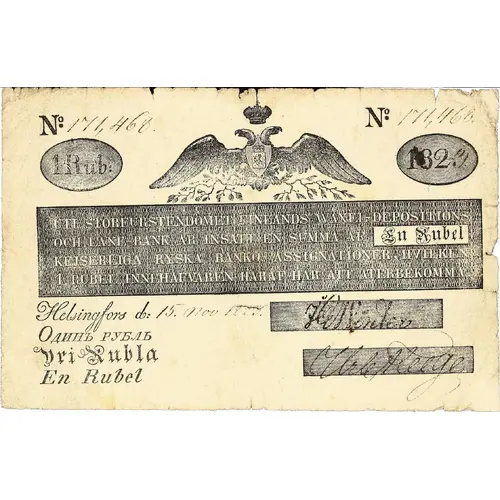 No: 171,460. No: 171,460.
1 Rub: 1825
UTI STORFURSTENDÖMET FINLANDS WÄXEL-DEPOSITIONS
OCH LÅNE BANK ÄR INSATT EN SUMMA AF En Rubel
KEJSERLIGA RYSKA BANKO ASSIGNATIONER, HVILKEN
1 RUBEL INNEHAFVAREN HÄRAF HAR ATT ÅTERBEKOMMA.
Helsingfors d: 15. Nov
ОДИНЪ РУБЛЬ
Yxi Rubla
En Rubel